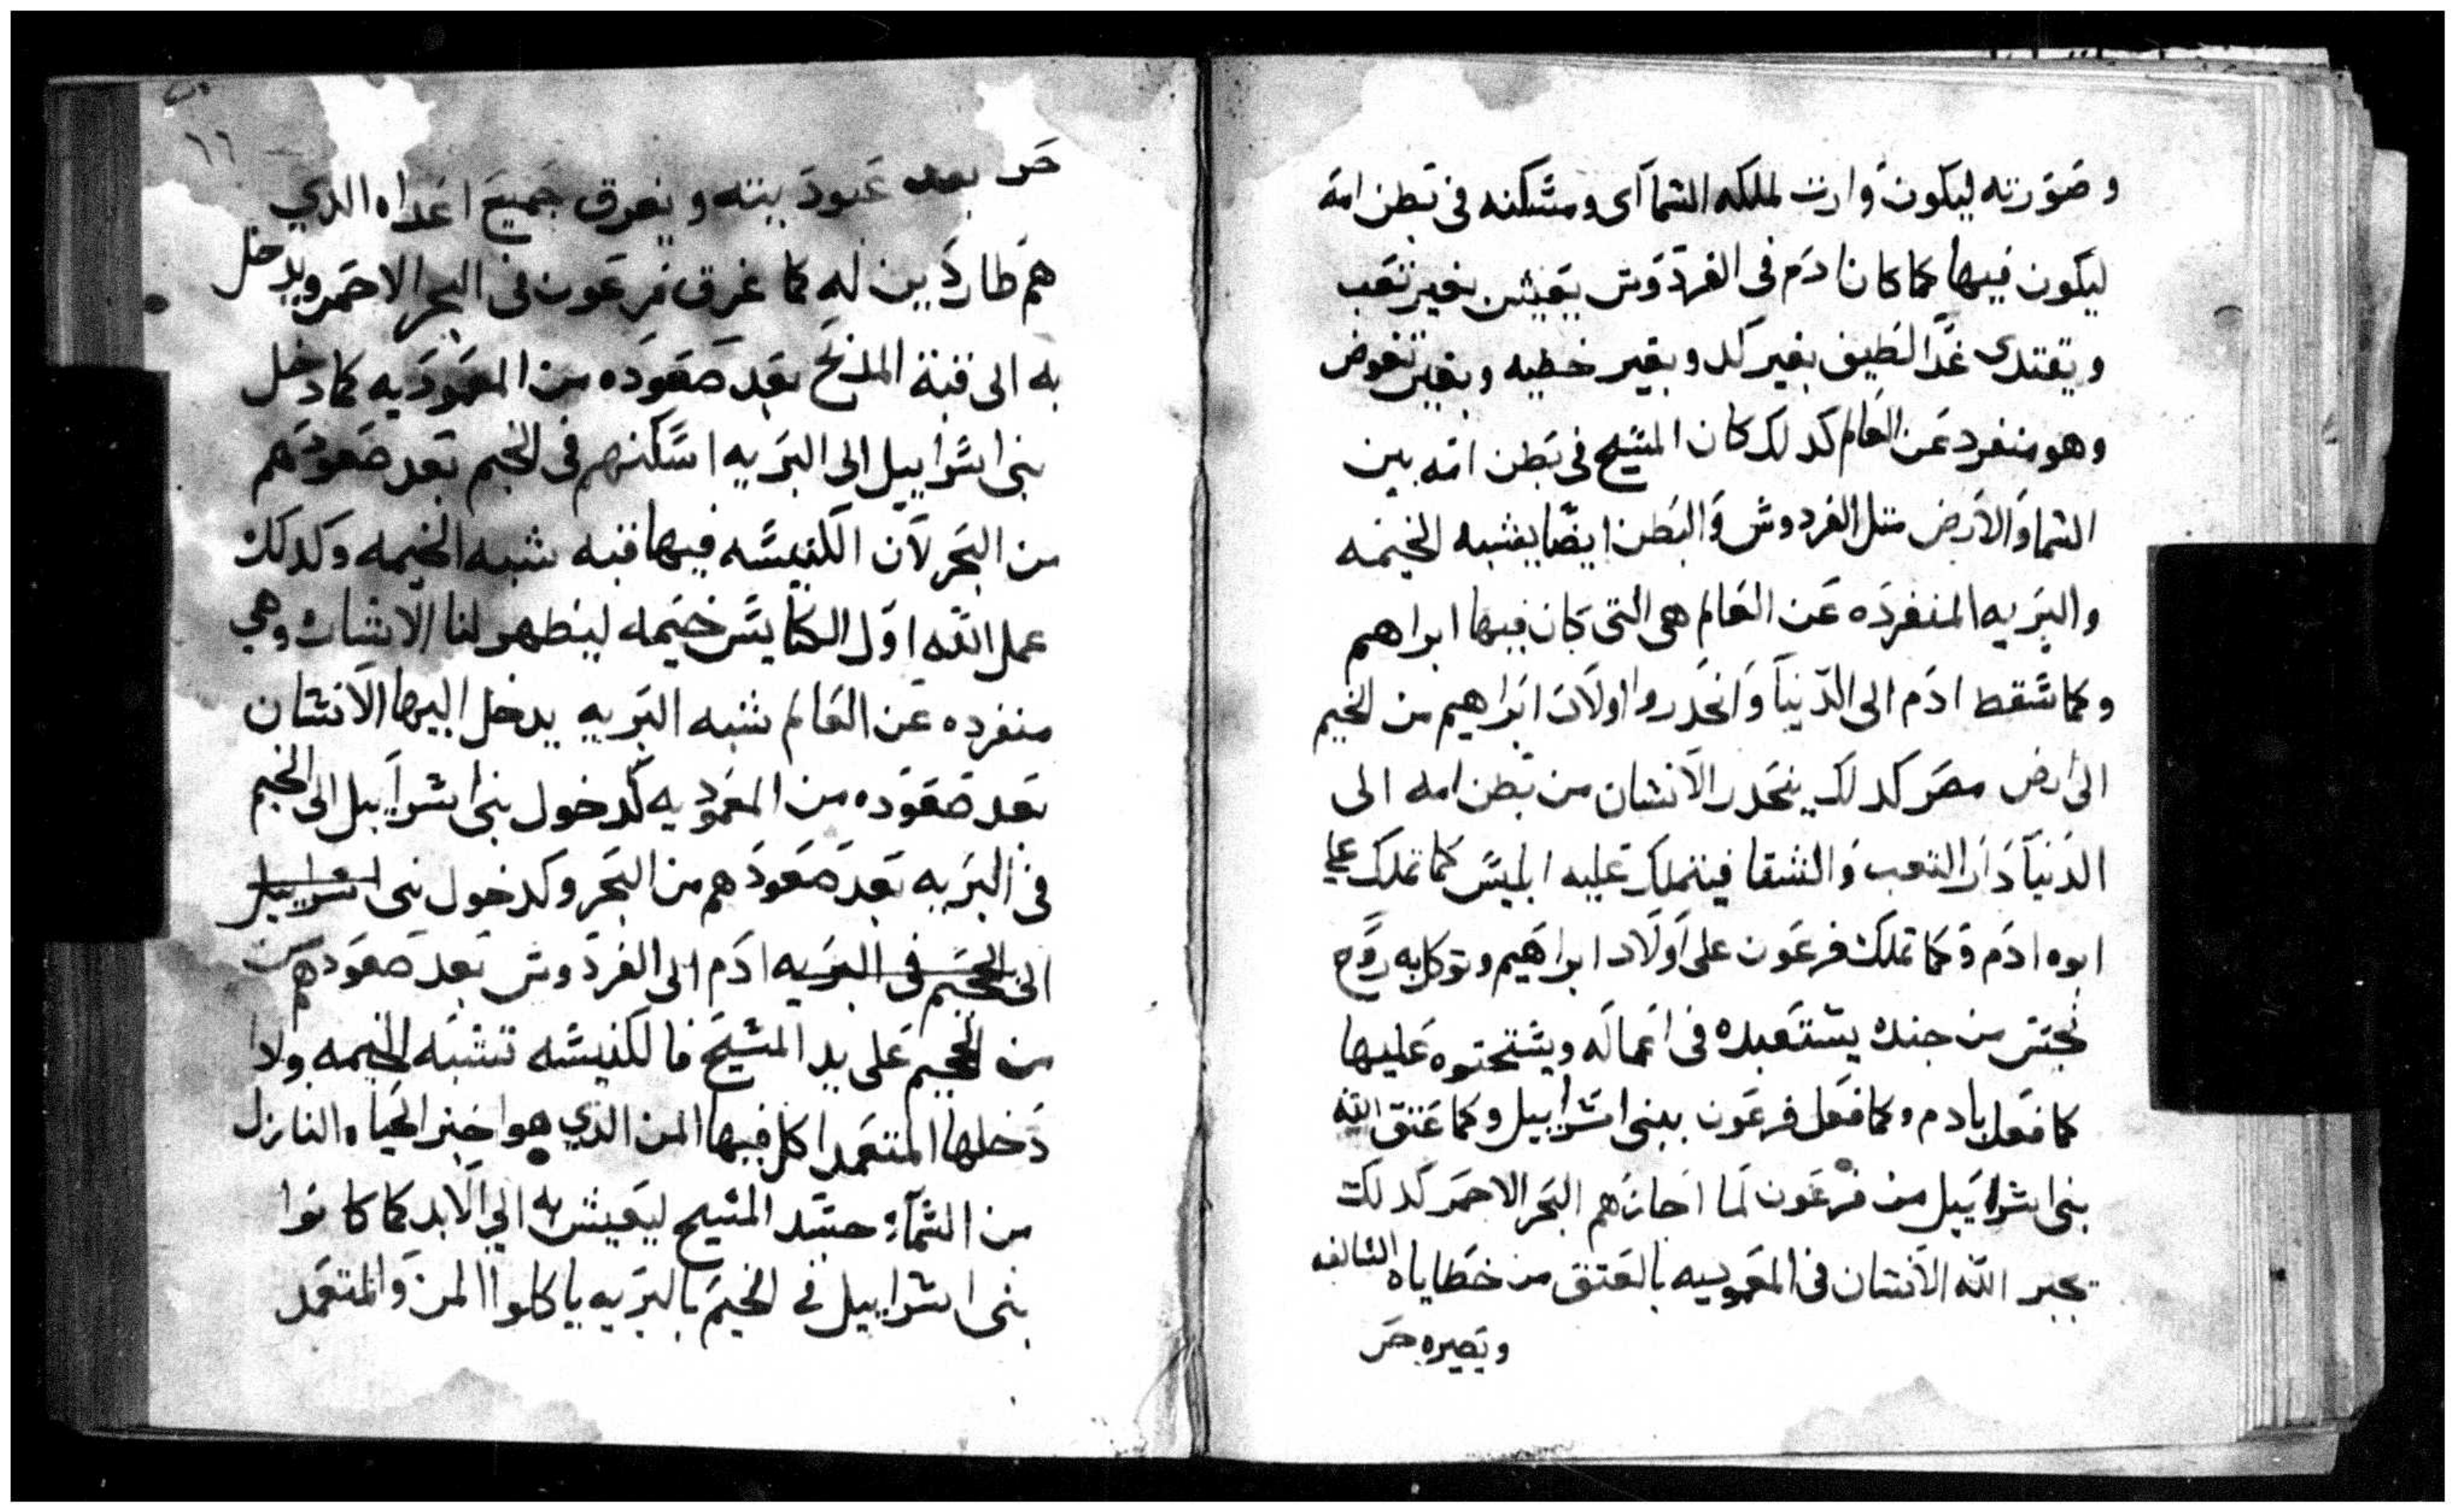 وصورته ليكون وارت لملكه السماآى ومسكنه فى بطن امه
ليكون فيها كما كان ادم فى الفردوس يعيش بغير تعب
ويغتدى غدا لطيف بغير كد وبغير خطيه وبغير تغوض
وهو منفرد عن العالم كدلك كان المسيح فى بطن امه بين
السما والارض متل الفردوس والبطن ايضا يشبه الخيمه
والبريه المنفرده عن العالم هى التى كان فيها ابراهيم
وكما سقط ادم الى الدنيا وانحدروا اولاد ابراهيم من الخيم
الى ارض مصر كدلك ينحدر الانسان من بطن امه الى
الدنيا دار التعب والشقا فيتملك عليه ابليس كما تملك على
ابوه ادم وكما تملك فرعون على اولاد ابراهيم وتوكل به روح
نجس من جنده يستعبده فى اعماله ويستحتوه عليها
كما فعل بادم وكما فعل فرعون ببنى اسراييل وكما عتق الله
بنى اسراييل من فرعون لما اجازهم البحر الاحمر كدلك
يجبر الله الانسان فى المعموديه بالعتق من خطاياه السالفه
ويصيره حر
١٦
حر بعد عبوديته ويغرق جميع اعداه الدي
هم طاردين له كما غرق فرعون فى البحر الاحمر ويدخل
به الى قبة المدبح بعد صعوده من المعموديه كما دخل
بنى اسراييل الى البريه اسكنهم فى الخيم بعد صعودهم
من البحر لان الكنيسه فيها قبه شبه الخيمه وكدلك
عمل الله اول الكنايس خيمه ليظهر لنا الاشات وهي
منفرده عن العالم شبه البريه يدخل اليها الانسان
بعد صعوده من المعموديه كدخول بنى اسراييل الى الخيم
فى البريه بعد صعودهم من البحر وكدخول بنى اسراييل
الى الخيم فى البريه ادم الى الفردوس بعد صعودهم
من الجحيم على يد المسيح فالكنيسه تشبه الخيمه ولادا
دخلها المتعمد اكل فيها المن الدي هوا خبز الحياه النازل
من السماء جسد المسيح ليعيش به الي الابد كما كانوا
بنى اسراييل فى الخيم بالبريه ياكلوا المن والمتعمد